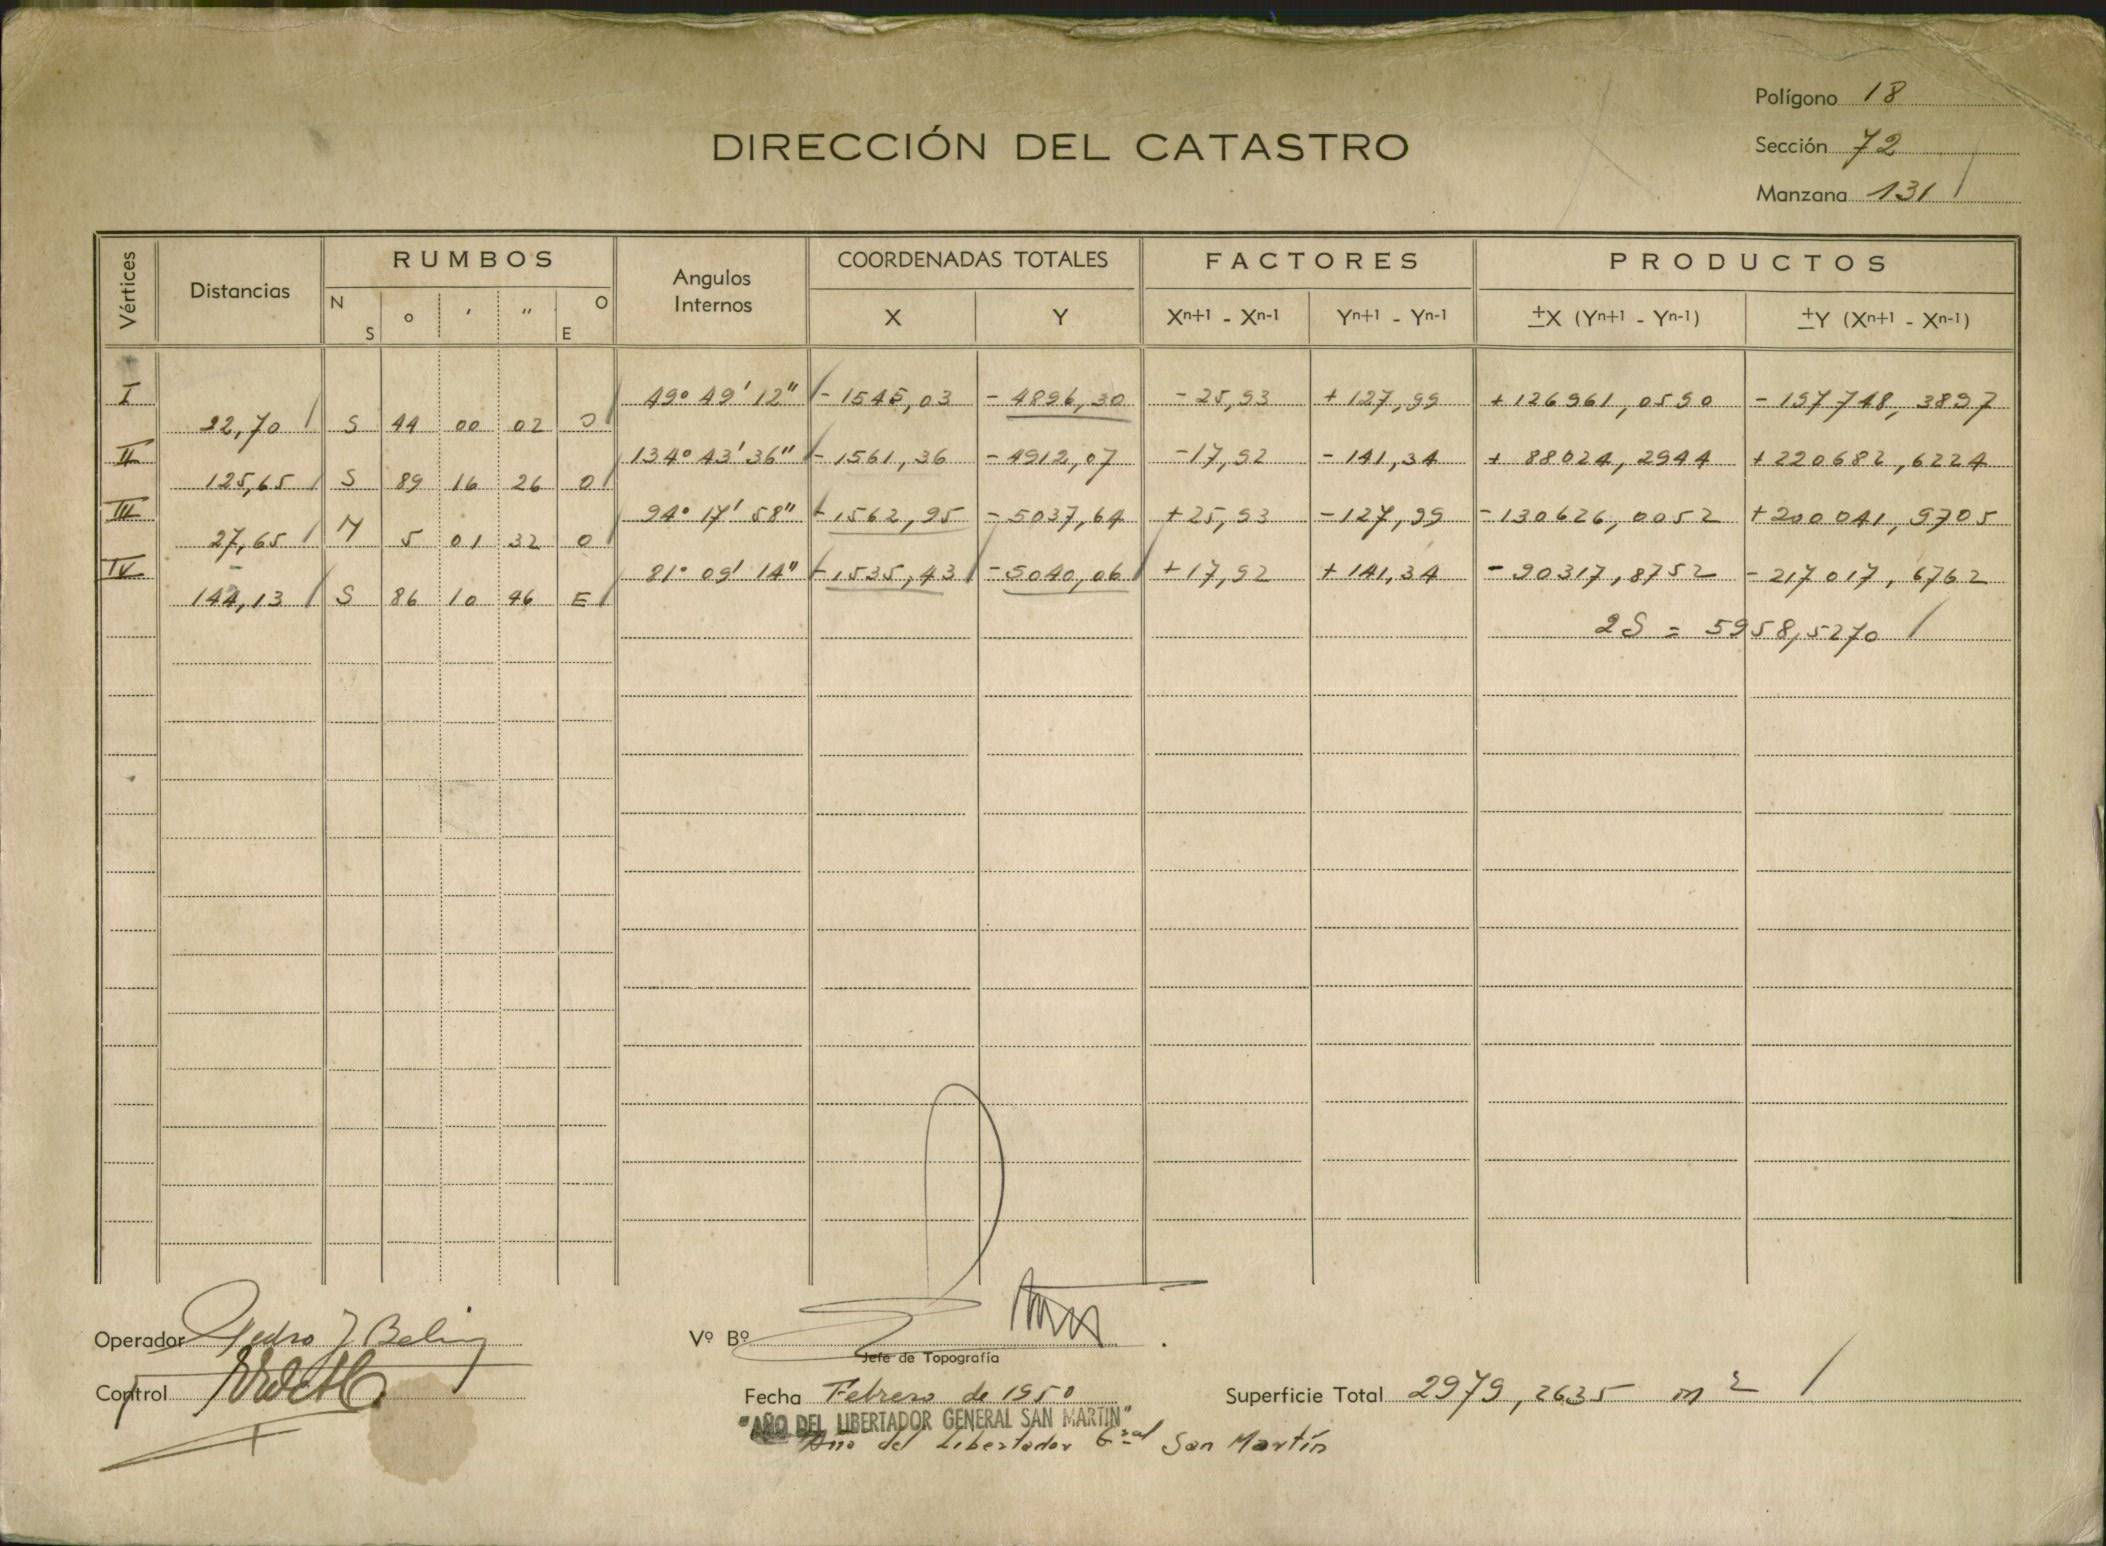 Polígono 18
DIRECCIÓN DEL CATASTRO
Sección 72
Manzana 131
Vértices Distancias RUMBOS Angulos Internos COORDENADAS TOTALES FACTORES PRODUCTOS
N S ° ' " O E X Y Xn+1 - Xn-1 Yn+1 - Yn-1 ±X (Yn+1 - Yn-1) ±Y (Xn+1 - Xn-1)
I 49° 49' 12" - 1545,03 - 4896,30 - 25,93 + 127,99 + 126961,0590 - 197748,3897
22,70 S 44 00 02 O
II 134° 43' 36" - 1561,36 - 4912,07 - 17,92 - 141,34 + 88024,2944 + 220682,6224
125,65 S 89 16 26 O
III 94° 17' 58" - 1562,95 - 5037,64 + 25,93 - 127,99 - 130626,0052 + 200041,9705
27,65 N 5 01 32 O
IV 81° 09' 14" - 1535,43 - 5040,06 + 17,92 + 141,34 - 90317,8752 - 217017,6762
144,13 S 86 10 46 E
2S = 5958,5270
Operador Pedro J
Vº Bº
Jefe de Topografía
Control
Fecha Febrero de 1950
Superficie Total 2979,2635 m2
"AÑO DEL LIBERTADOR GENERAL SAN MARTIN"
Año del Libertador Gral San Martín